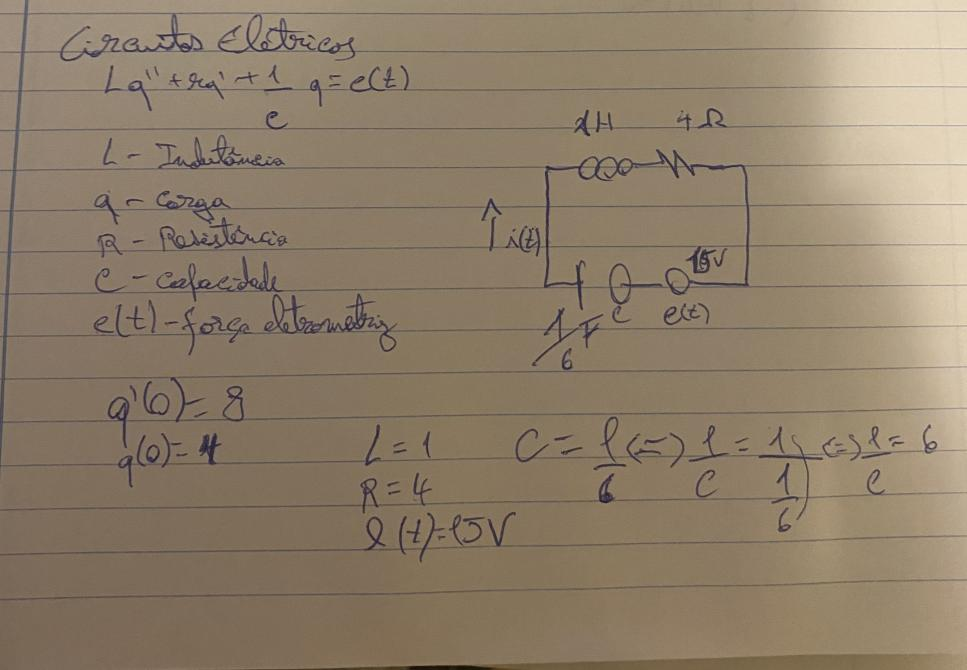 Circuitos Elétricos
Lq'' + rq' + 1/c q = e(t)
L - Indutância
q - Carga
R - Resistência
C - Capacidade
e(t) - força eletrometriz
1H 4 Ω
i(t)
15V
1/6 F C e(t)
q'(0) = 8
q(0) = 4
L = 1
R = 4
e(t) = 15V
C = 1/6 (=) 1/C = 1/(1/6) (=) 1/C = 6